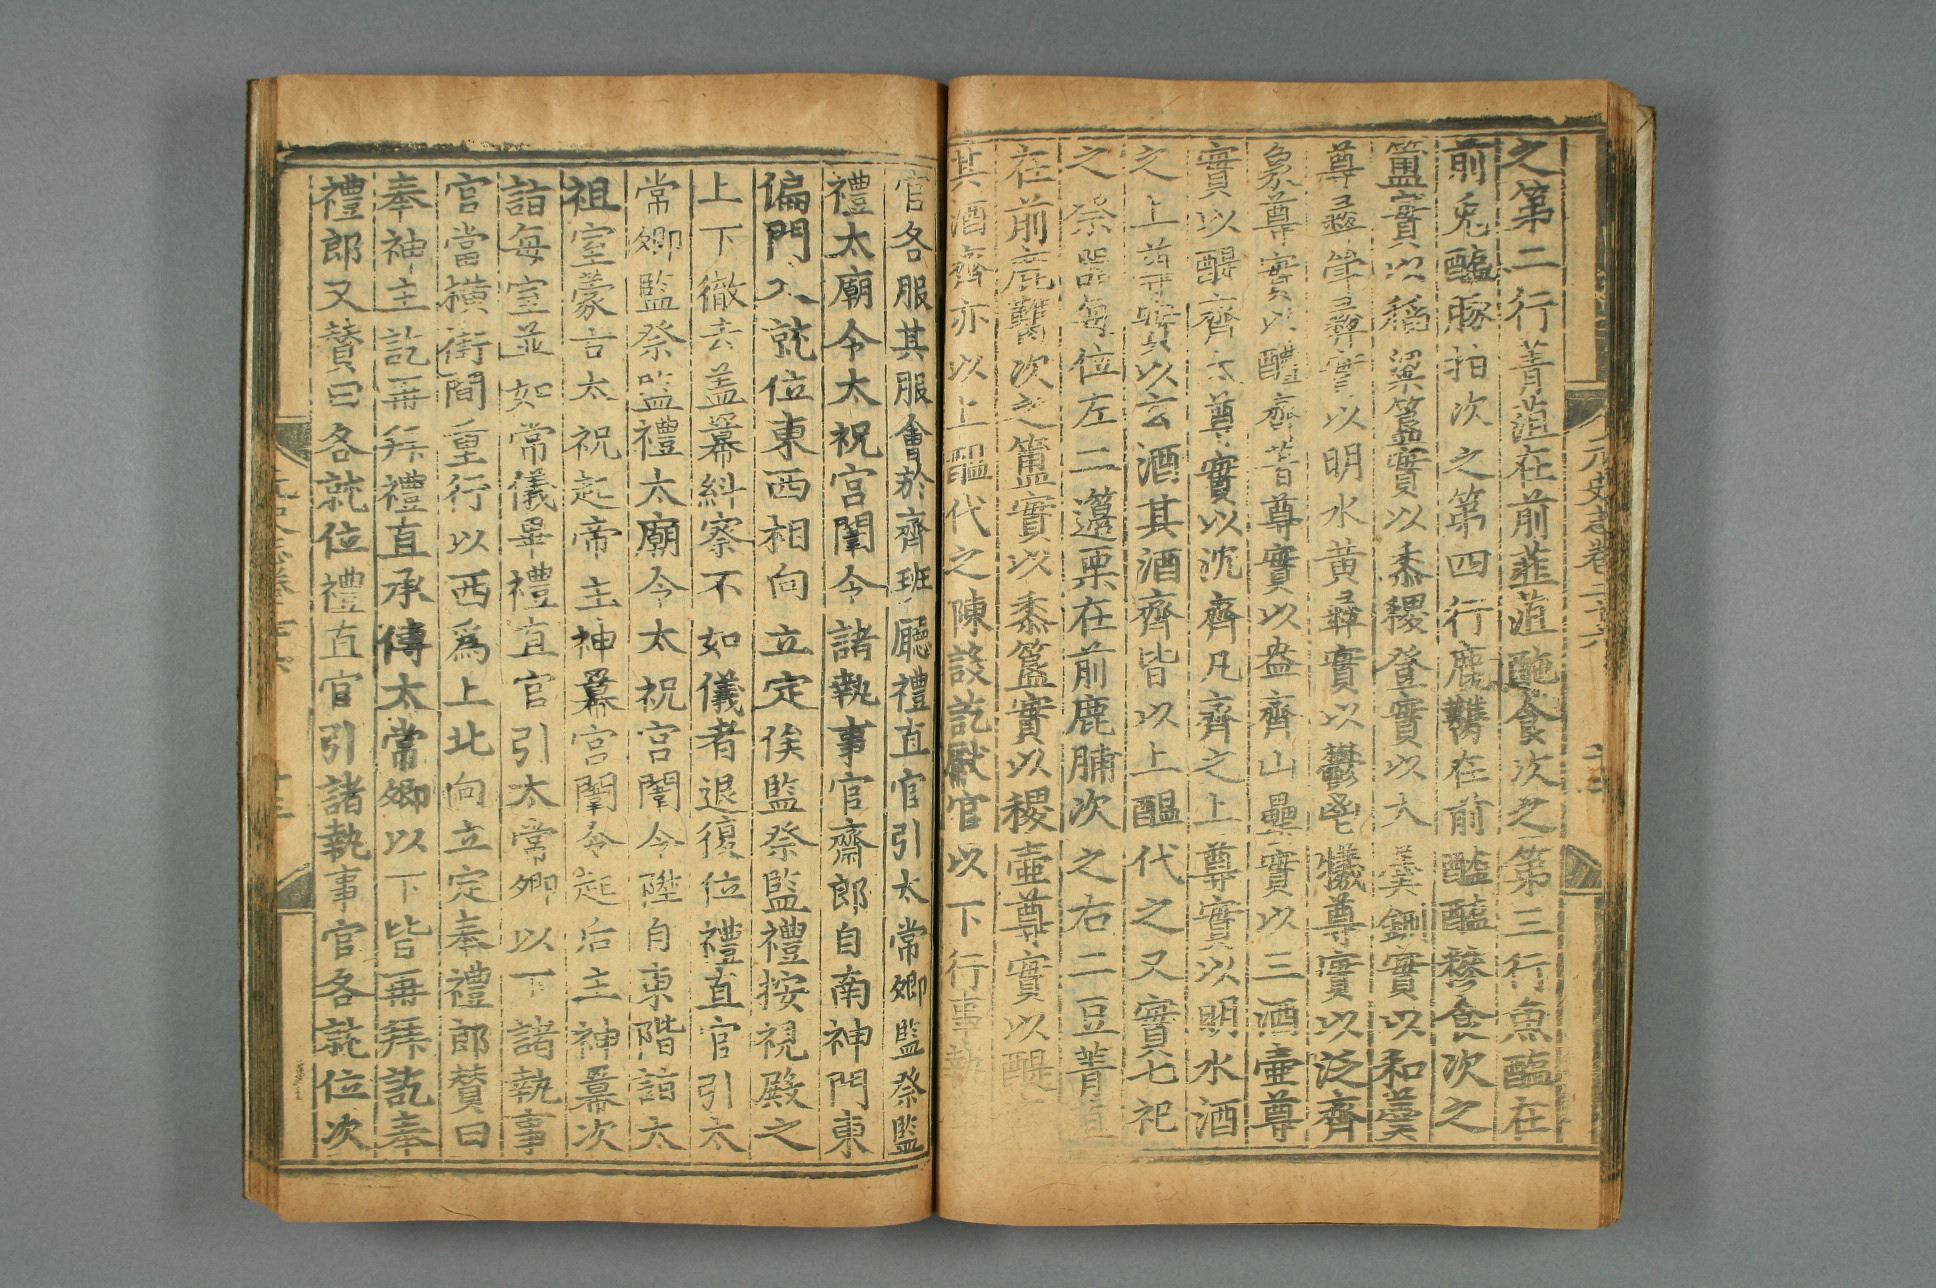 之第二行菁菹在前韭菹酏食次之第三行魚醢在
前兎醢豚拍次之第四行鹿臡在前醓醢糝食次之
簠實以稻粱簋實以黍稷登實以大羹鉶實以和羹
尊彝斝彝實以明水黃彝實以鬱鬯犧尊實以泛齊
象尊實以醴齊著尊實以盎齊山罍實以三酒壺尊
實以醍齊太尊實以沈齊凡齊之上尊實以明水酒
之上尊實以玄酒其酒齊皆以上醞代之又實七祀
之祭器每位左二籩栗在前鹿脯次之右二豆菁菹
在前鹿臡次之簠實以黍簋實以稷壺尊實以醍
其酒齊亦以上醞代之陳設訖獻官以下行事執
元史志卷二十六
官各服其服會於齊班廳禮直官引太常卿監祭監
禮太廟令太祝宮闈令諸執事官齋郎自南神門東
偏門入就位東西相向立定俟監祭監禮按視殿之
上下徹去蓋羃糾察不如儀者退復位禮直官引太
常卿監祭監禮太廟令太祝宮闈令陞自東階詣太
祖室蒙古太祝起帝主神羃宮闈令起后主神羃次
詣每室並如常儀畢禮直官引太常卿以下諸執事
官當橫街間重行以西爲上北向立定奉禮郎贊曰
奉神主訖再拜禮直承傳太常卿以下皆再拜訖奉
禮郎又贊曰各就位禮直官引諸執事官各就位次
十三